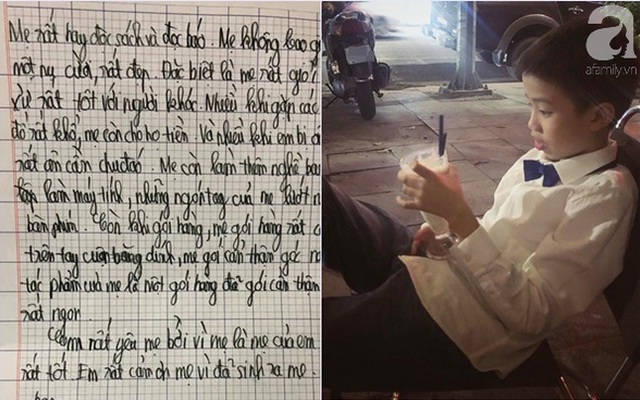 Mẹ rất hay đọc sách và đọc báo. Mẹ không bao g
một nụ cười, rất đẹp. Đặc biệt là mẹ rất giỏi
xử rất tốt với người khác. Nhiều khi gặp các
đồ rất khổ, mẹ còn cho họ tiền. Và nhiều khi em bị
rất ân cần chu đáo. Mẹ còn làm thêm nghề
làm máy tính, những ngón tay của mẹ lướt
bàn phím. Còn khi gói hàng, mẹ gói hàng rất
trên tay cuộn băng dính, mẹ gói cẩn thận góc
tác phẩm của mẹ là một gói hàng đã gói cẩn thận
rất ngon.
Em rất yêu mẹ bởi vì mẹ là mẹ của em
rất tốt. Em rất cảm ơn mẹ vì đã sinh ra mẹ.
a
afamily.vn